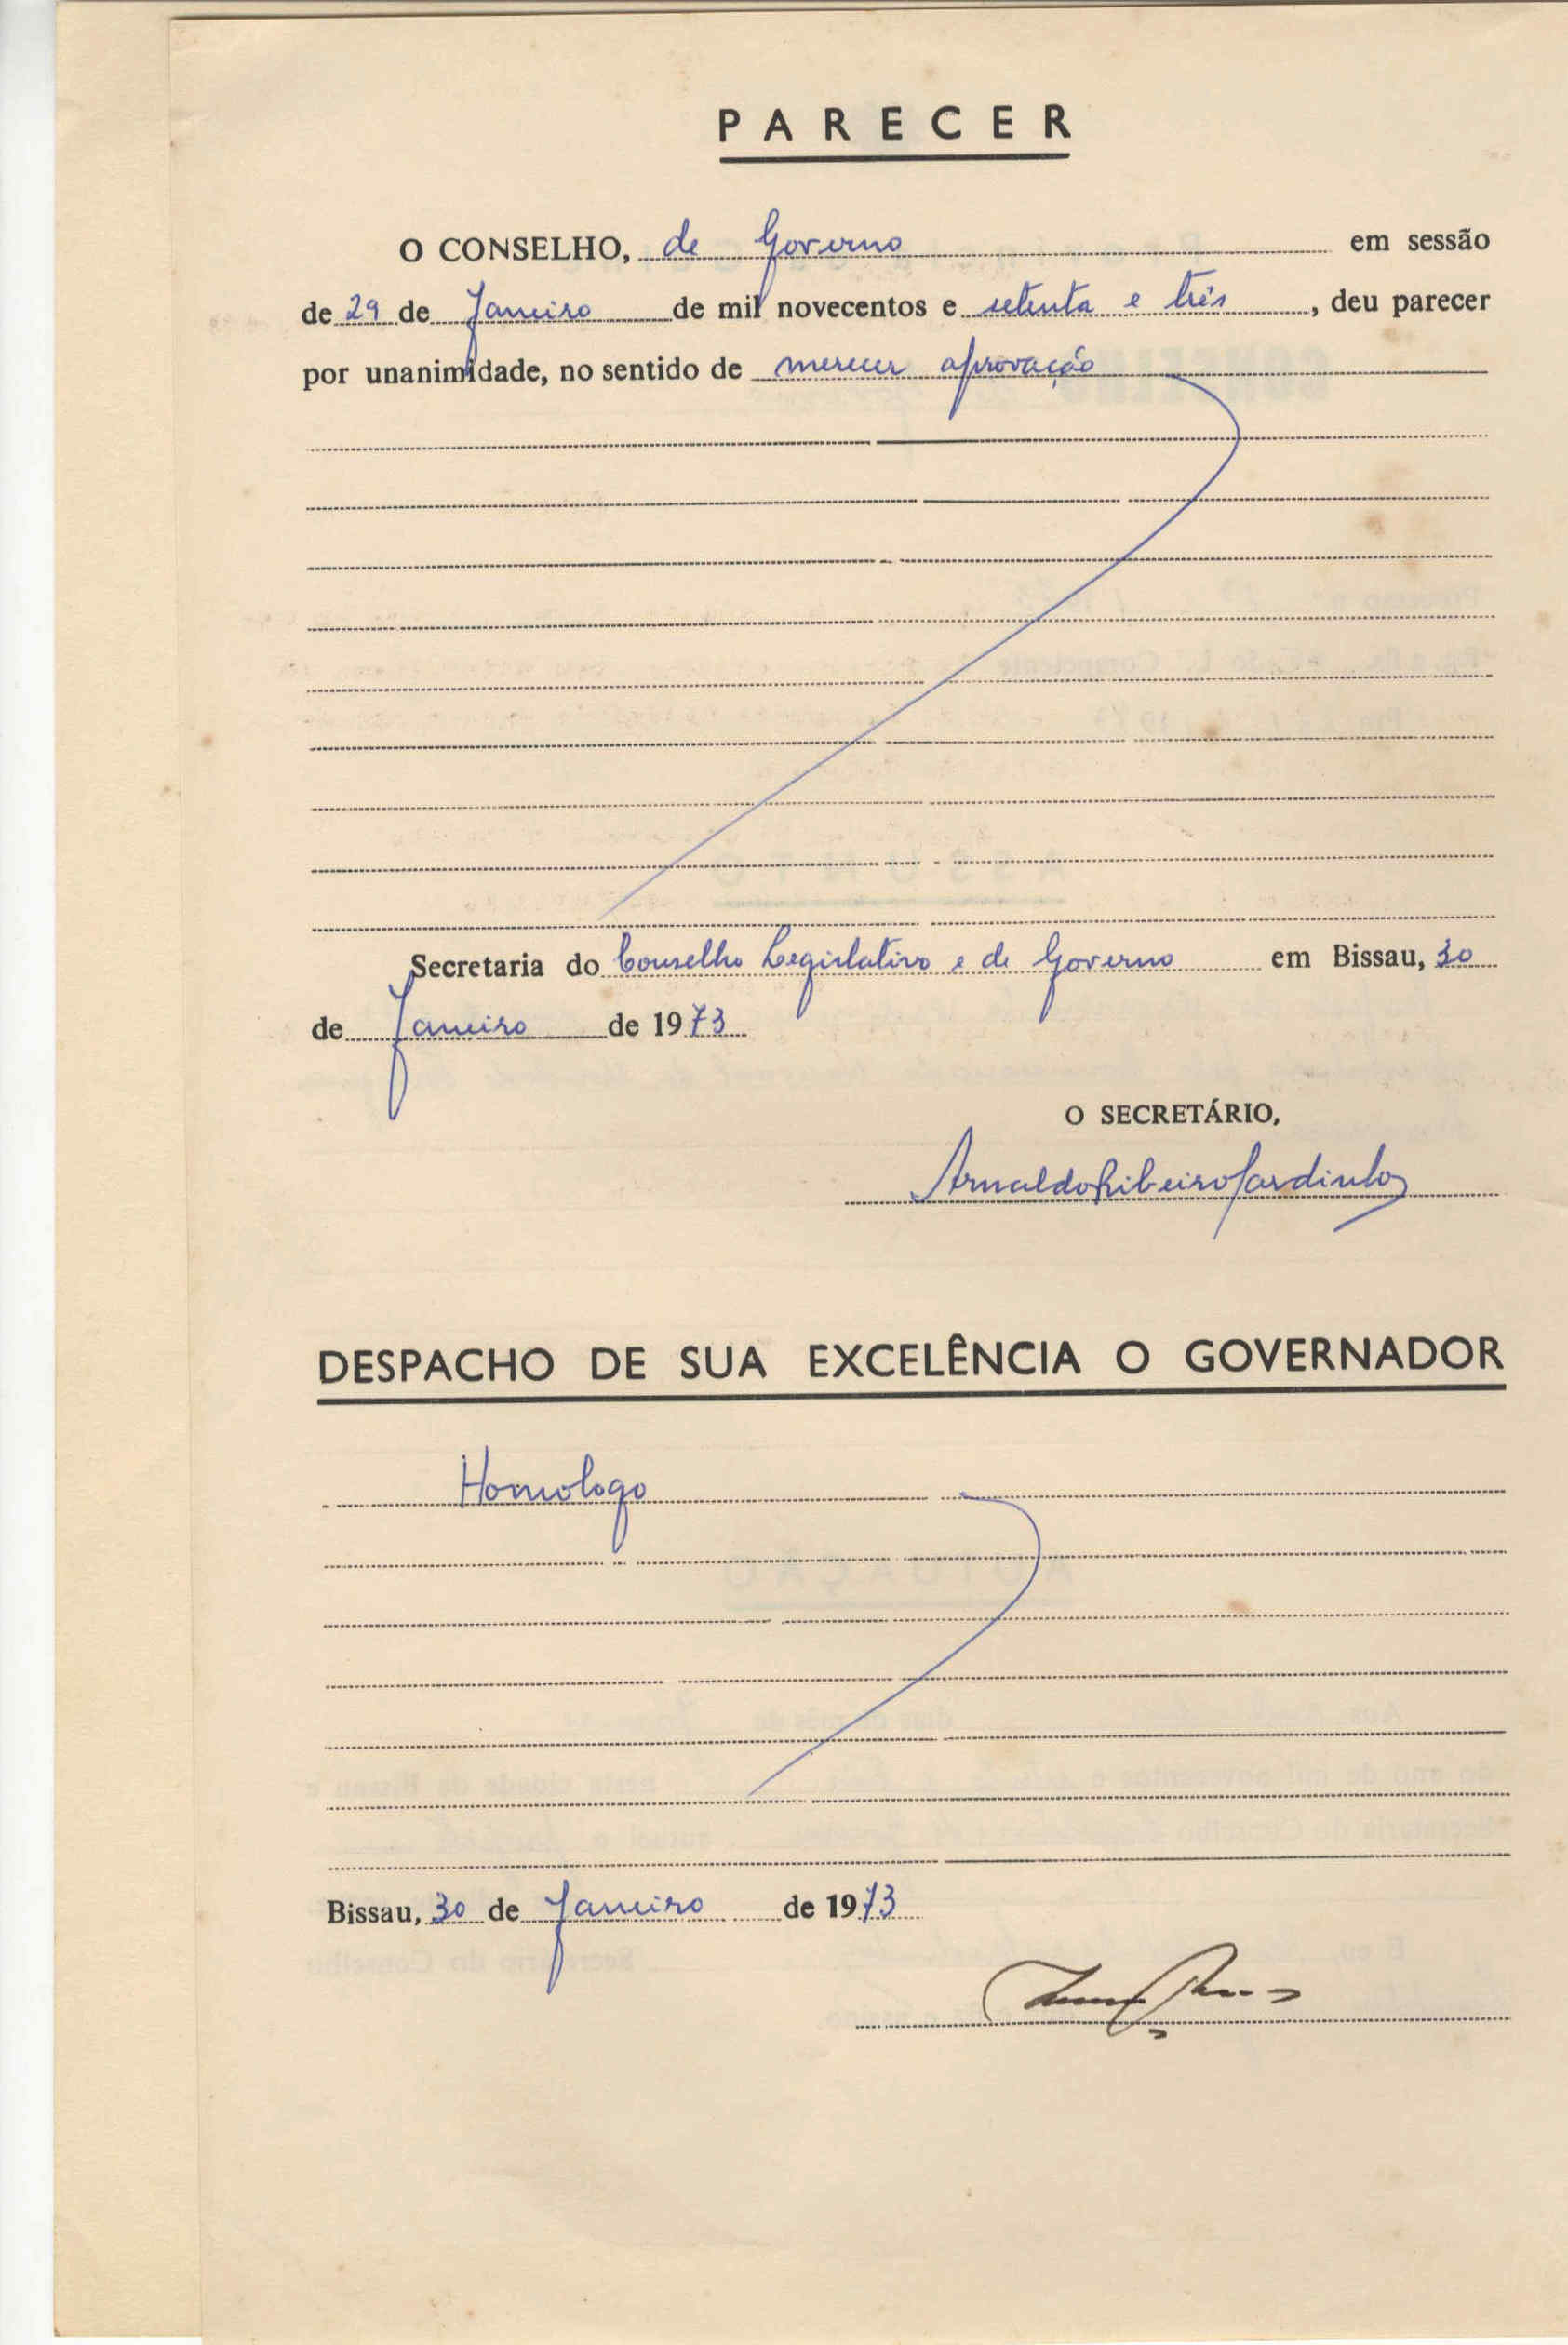 PARECER
O CONSELHO, de Governo em sessão
de 29 de Janeiro de mil novecentos e setenta e três, deu parecer
por unanimidade, no sentido de merecer aprovação
Secretaria do Conselho Legislativo e de Governo em Bissau, 30
de Janeiro de 1973
O SECRETÁRIO,
Arnaldo Ribeiro Sardinha
DESPACHO DE SUA EXCELÊNCIA O GOVERNADOR
Homologo
Bissau, 30 de Janeiro de 1973